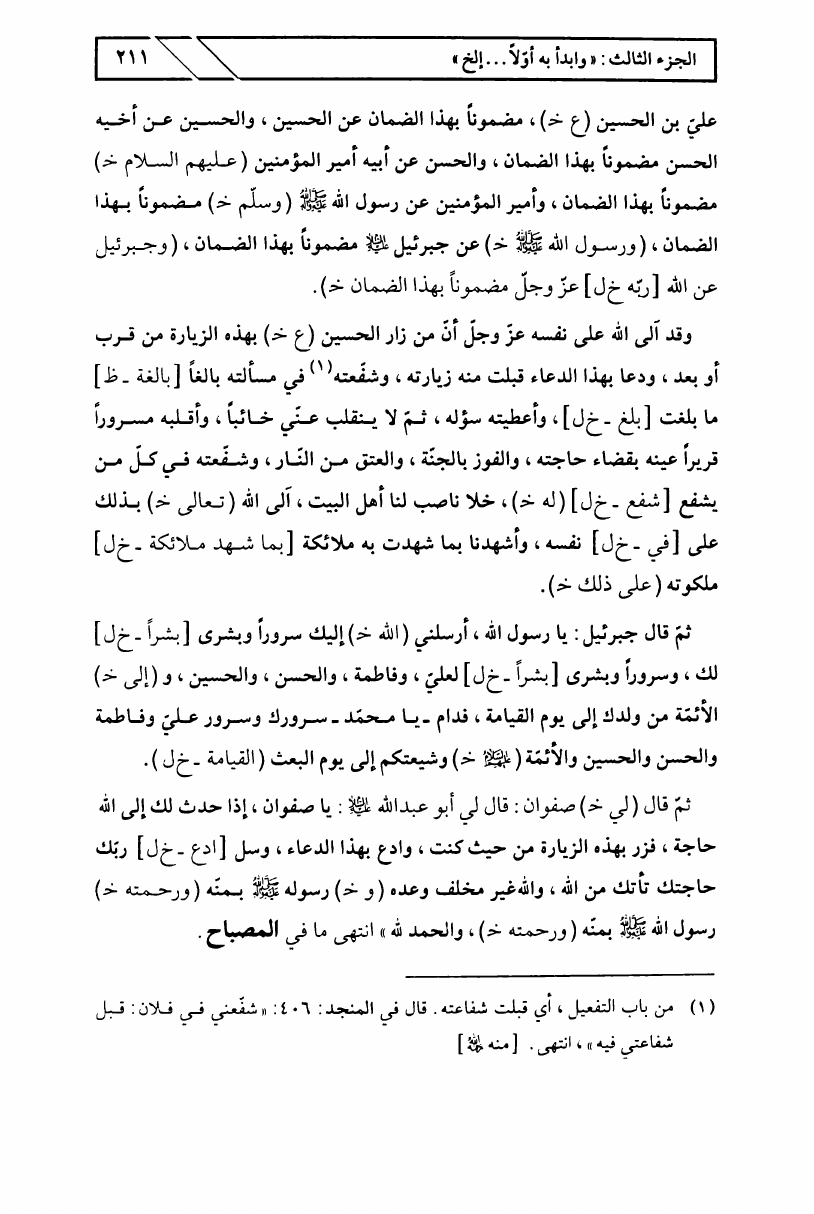 الجزء الثالث: «وابدأ به أوّلاً...إلخ»
٢١١
عليّ بن الحسين (ع خ)، مضموناً بهذا الضمان عن الحسين، والحسـين عـن أخـيه
الحسن مضموناً بهذا الضمان، والحسن عن أبيه أمير المؤمنين (عـليهم السـلام خ)
مضموناً بهذا الضمان، وأمير المؤمنين عن رسول الله ﷺ (وسلّم خ) مـضموناً بـهذا
الضمان، (ورسـول الله ﷺ خ) عن جبرئيل ﵇ مضموناً بهذا الضـمان، (وجـبرئيل
عن الله [ربّه خ ل] عزّ وجلّ مضموناً بهذا الضمان خ).
وقد آلى الله على نفسه عزّ وجلّ أنّ من زار الحسين (ع خ) بهذه الزيارة من قـرب
أو بعد، ودعا بهذا الدعاء قبلت منه زيارته، وشفّعته(١) في مسألته بالغاً [بالغة ـ ظ]
ما بلغت [بلغ ـ خ ل]، وأعطيته سؤله، ثـمّ لا يـنقلب عـنّي خـائباً، وأقـلبه مسـروراً
قريراً عينه بقضاء حاجته، والفوز بالجنّة، والعتق مـن النّـار، وشـفّعته فـي كـلّ مـن
يشفع [شفع ـ خ ل] (له خ)، خلا ناصب لنا أهل البيت، آلى الله (تـعالى خ) بـذلك
على [في ـ خ ل] نفسه، وأشهدنا بما شهدت به ملائكة [بما شـهد مـلائكة ـ خ ل]
ملكوته (على ذلك خ).
ثمّ قال جبرئيل: يا رسول الله، أرسلني (الله خ) إليك سروراً وبشرى [بشراً ـ خ ل]
لك، وسروراً وبشرى [بشراً ـ خ ل] لعليّ، وفاطمة، والحسن، والحسين، و (إلى خ)
الأئمّة من ولدك إلى يوم القيامة، فدام ـ يـا مـحمّد ـ سـرورك وسـرور عـليّ وفـاطمة
والحسن والحسين والأئمّة (﵈ خ) وشيعتكم إلى يوم البعث (القيامة ـ خ ل).
ثمّ قال (لي خ) صفوان: قال لي أبو عبدالله ﵇: يا صفوان، إذا حدث لك إلى الله
حاجة، فزر بهذه الزيارة من حيث كنت، وادع بهذا الدعاء، وسل [ادع ـ خ ل] ربّك
حاجتك تأتك من الله، والله غير مخلف وعده (و خ) رسوله ﷺ بـمنّه (ورحـمته خ)
رسول الله ﷺ بمنّه (ورحمته خ)، والحمد لله» انتهى ما في المصباح.
(١) من باب التفعيل، أي قبلت شفاعته. قال في المنجد: ٤٠٦: «شفّعني فـي فـلان: قـبل
شفاعتي فيه»، انتهى. [منه ﵀]